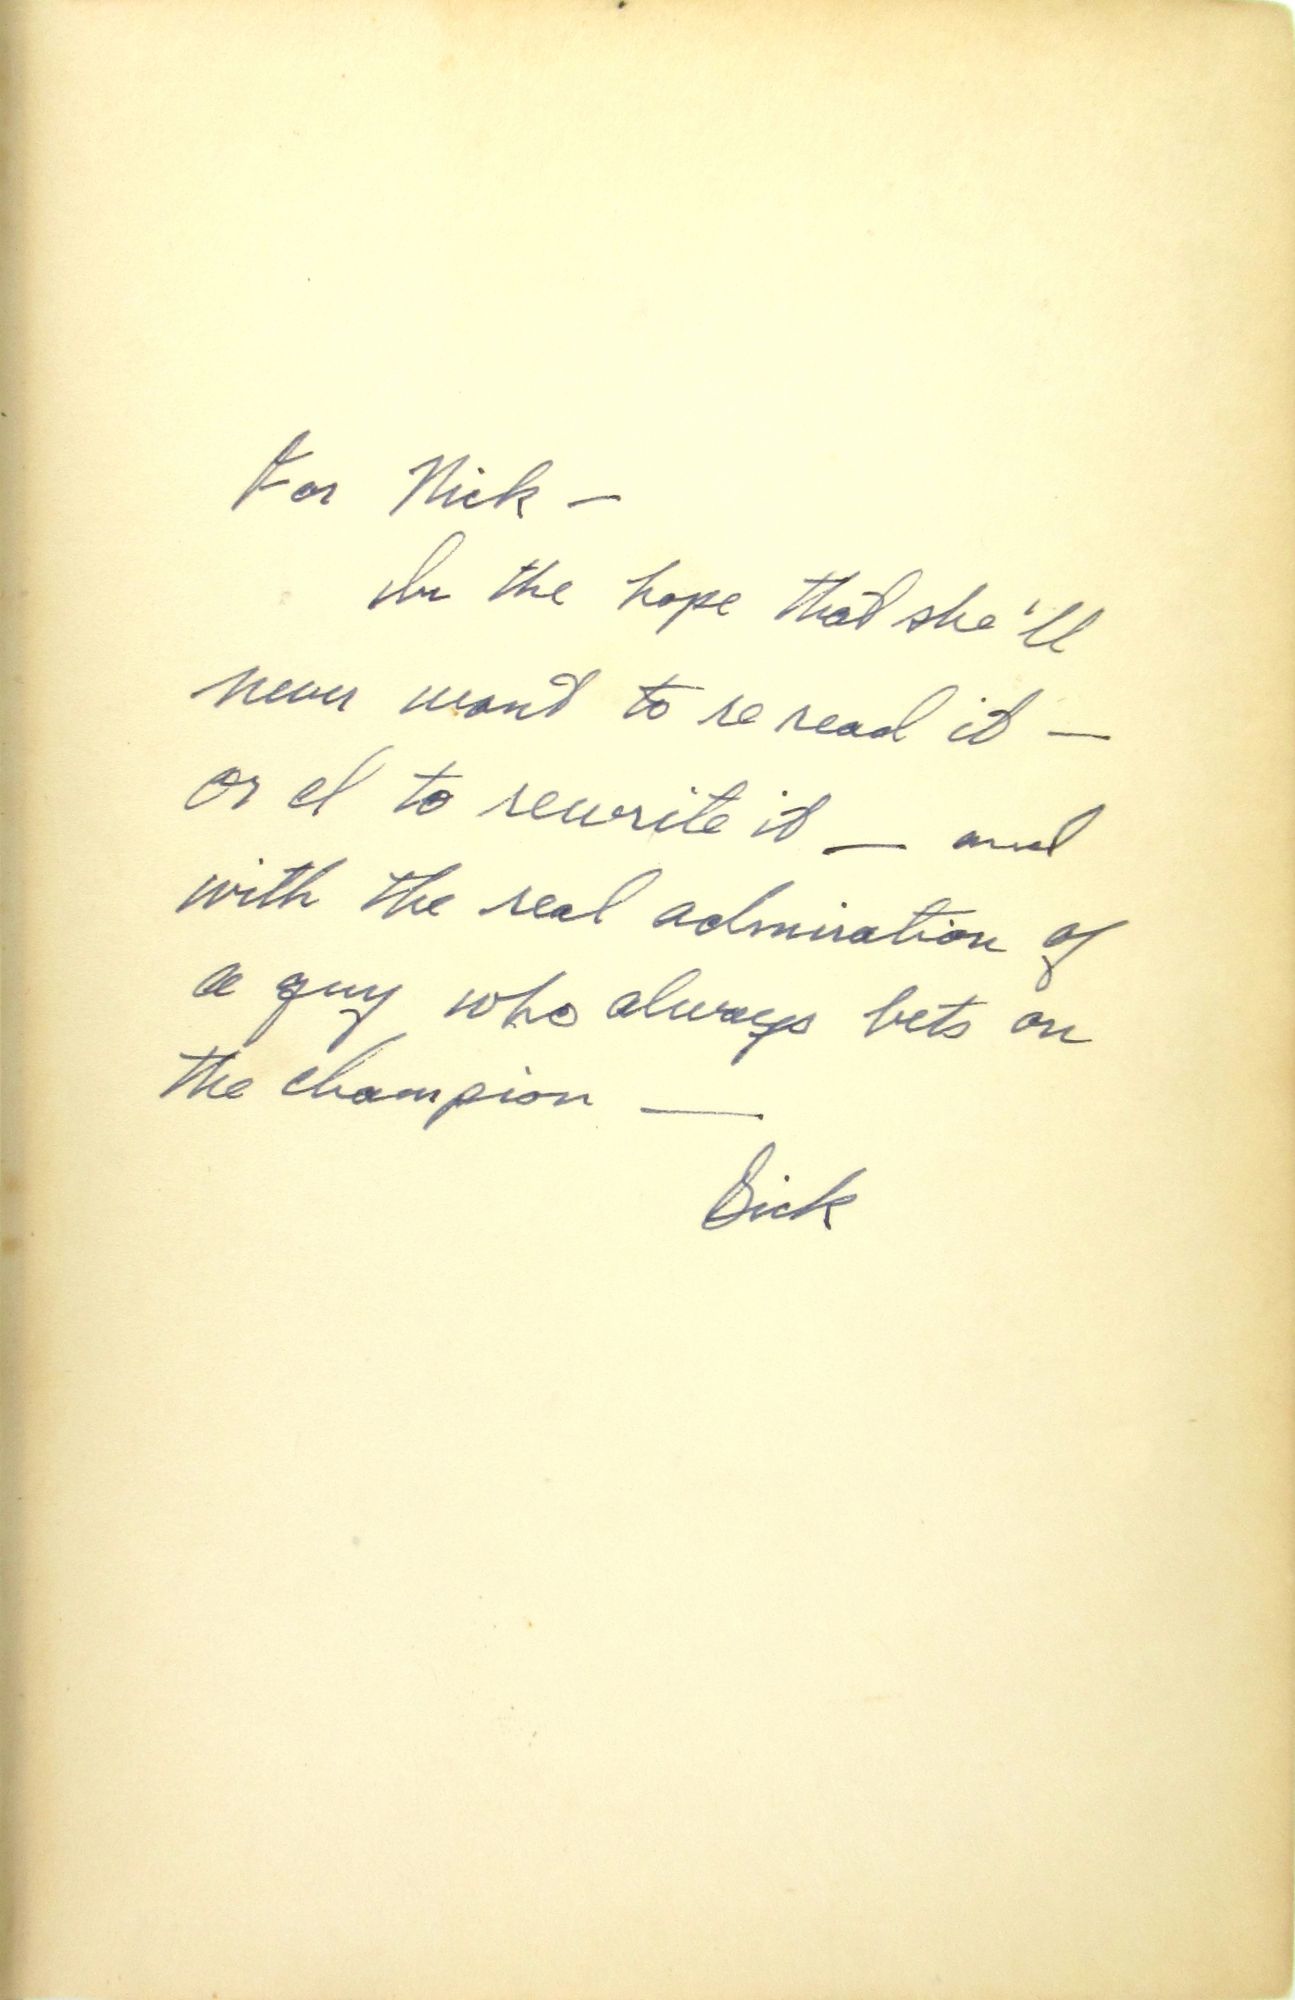 For Nick —
In the hope that she'll
never want to reread it —
or I to rewrite it — and
with the real admiration of
a guy who always bets on
the champion —
Dick